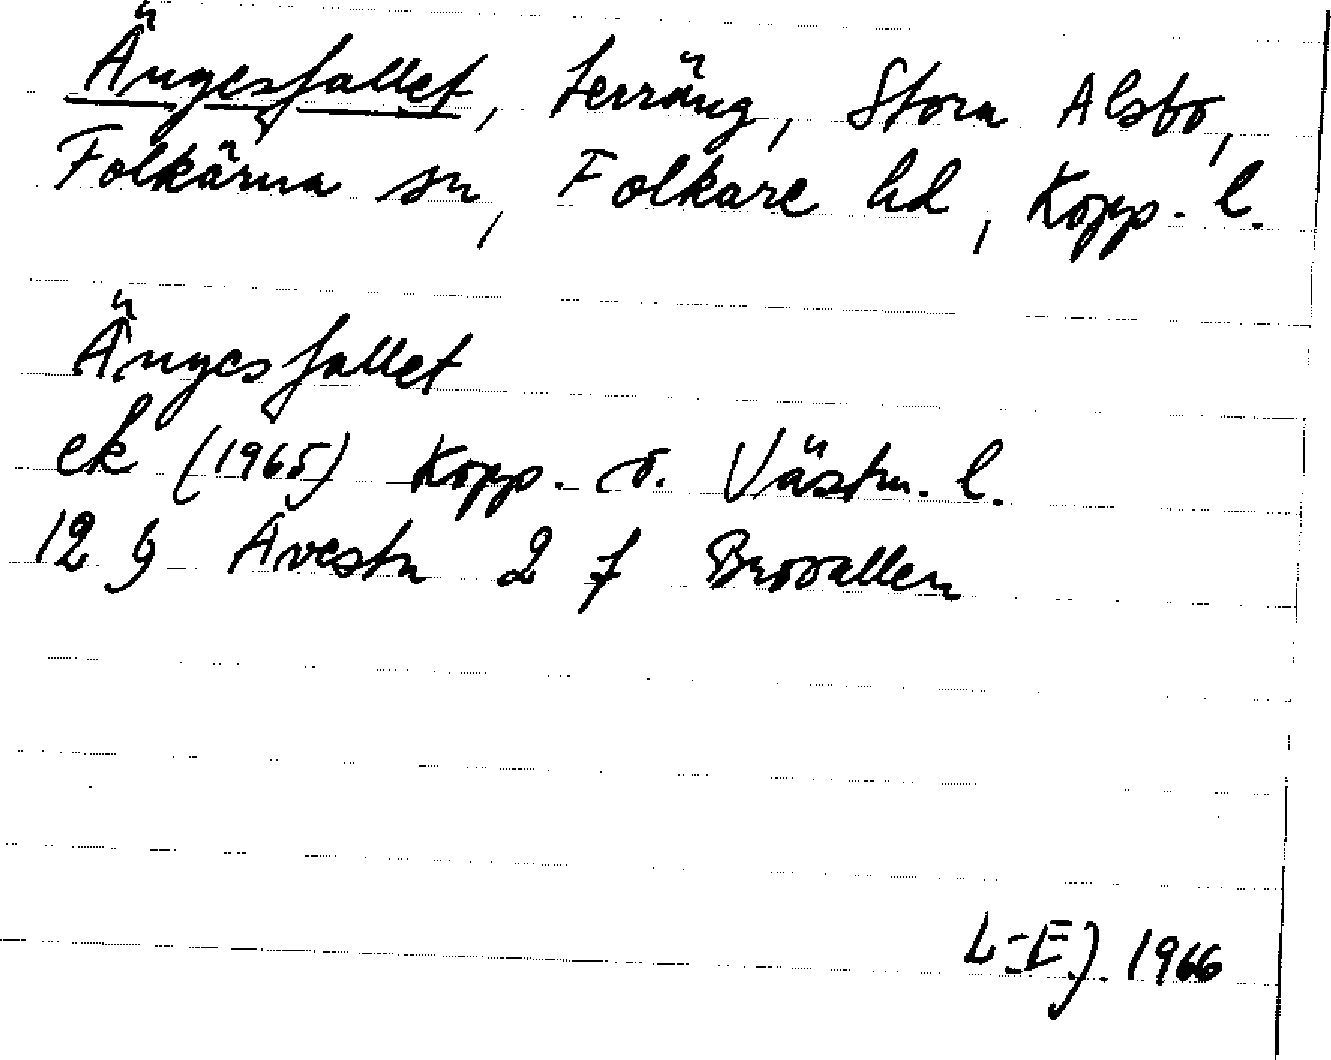 Ängesfallet, terräng, Stora Alsbo,
Folkärna sn, Folkare hd, Kopp. l.
Ängesfallet
ek (1965) Kopp. o. Västm. l.
12 g Avesta 2 f Brovallen
L-EJ 1966